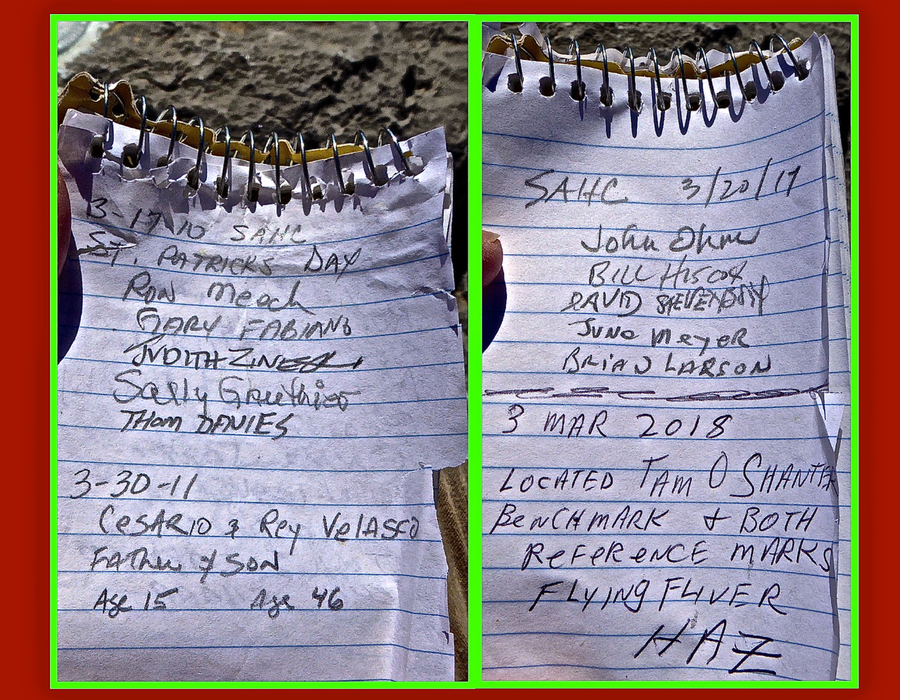 3-17-10 SAHC
ST. PATRICKS DAY
RON Meech
GARY FABIANO
JUDITH
Sally Gauthier
THOM DAVIES
3-30-11
CESARIO & Rey VELASCO
FATHER & SON
Age 15 Age 46
SAHC 3/20/17
John Ohm
BILL HISCOX
DAVID STEVENSON
JUNO MEYER
BRIAN LARSON
3 MAR 2018
LOCATED TAM O SHANTER
BENCHMARK & BOTH
REFERENCE MARKS
FLYING FLIVER
HAZ